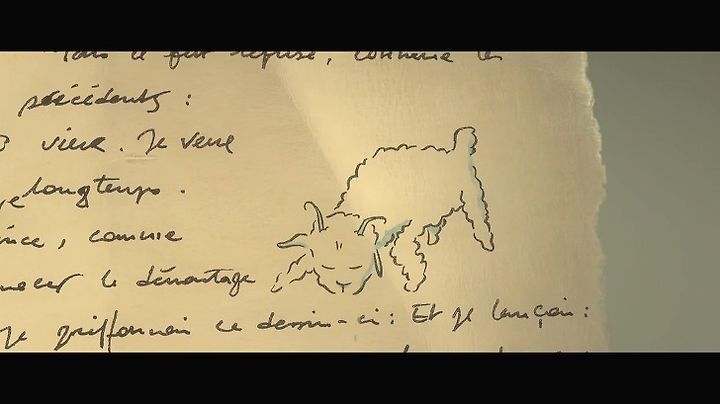 Mais il fut refusé, comme les
précédents :
vieux. Je veux
longtemps.
comme
le démontage
je griffonnai ce dessin-ci : Et je lançai :